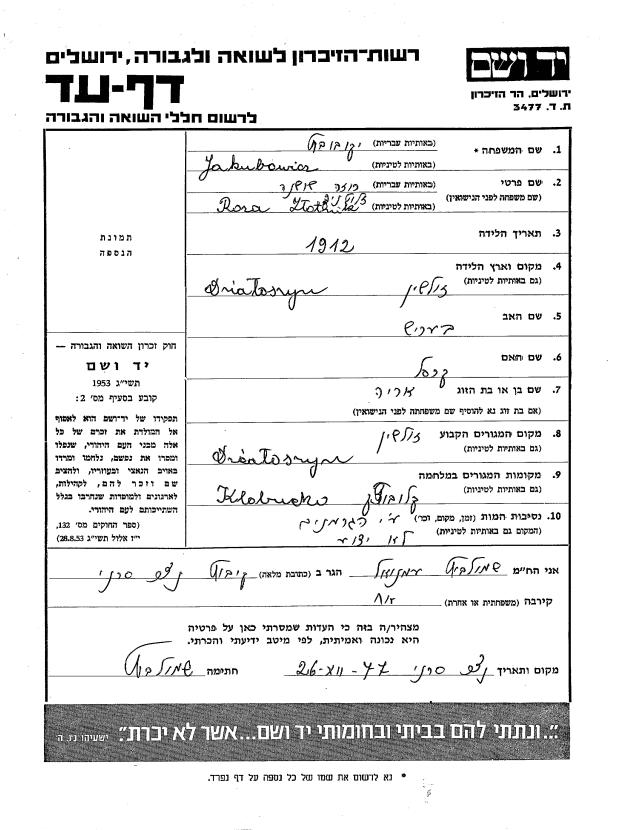 רשות-הזיכרון לשואה ולגבורה, ירושלים
דף-עד
לרשום חללי השואה והגבורה
יד ושם
ירושלים, הר הזיכרון
ת. ד. 3477
1. שם המשפחה * (באותיות עבריות) יקובוביץ
(באותיות לטיניות) Jakubowicz
2. שם פרטי (באותיות עבריות) רוזה שושנה
(שם משפחה לפני הנישואין) (באותיות לטיניות) Rosa
3. תאריך הלידה 1912
4. מקום וארץ הלידה
(גם באותיות לטיניות) Dziatoszyn
5. שם האב
6. שם האם
7. שם בן או בת הזוג אריה
(אם בת זוג נא להוסיף שם משפחתה לפני הנישואין)
8. מקום המגורים הקבוע
(גם באותיות לטיניות) Dziatoszyn
9. מקומות המגורים במלחמה
(גם באותיות לטיניות) Klobucko
10. נסיבות המות (זמן, מקום, וכו') ע"י הגרמנים
(המקום גם באותיות לטיניות) לא ידוע
תמונת
הנספה
חוק זכרון השואה והגבורה —
יד ושם
תשי"ג 1953
קובע בסעיף מס' 2:
תפקידו של יד-ושם הוא לאסוף
אל המולדת את זכרם של כל
אלה מבני העם היהודי, שנפלו
ומסרו את נפשם, נלחמו ומרדו
באויב הנאצי ובעוזריו, ולהציב
שם וזכר להם, לקהילות,
לארגונים ולמוסדות שנחרבו בגלל
השתייכותם לעם היהודי.
(ספר החוקים מס' 132,
י"ז אלול תשי"ג 28.8.53)
אני הח"מ שמולביץ עמנואל הגר ב (כתובת מלאה) קיבוץ נצר סרני
קירבה (משפחתית או אחרת)
מצהיר/ה בזה כי העדות שמסרתי כאן על פרטיה
היא נכונה ואמיתית, לפי מיטב ידיעתי והכרתי.
מקום ותאריך נצר סרני 26-XII-77 חתימה שמולביץ
"...ונתתי להם בביתי ובחומותי יד ושם...אשר לא יכרת". ישעיהו נ"ו, ה'
* נא לרשום את שמו של כל נספה על דף נפרד.